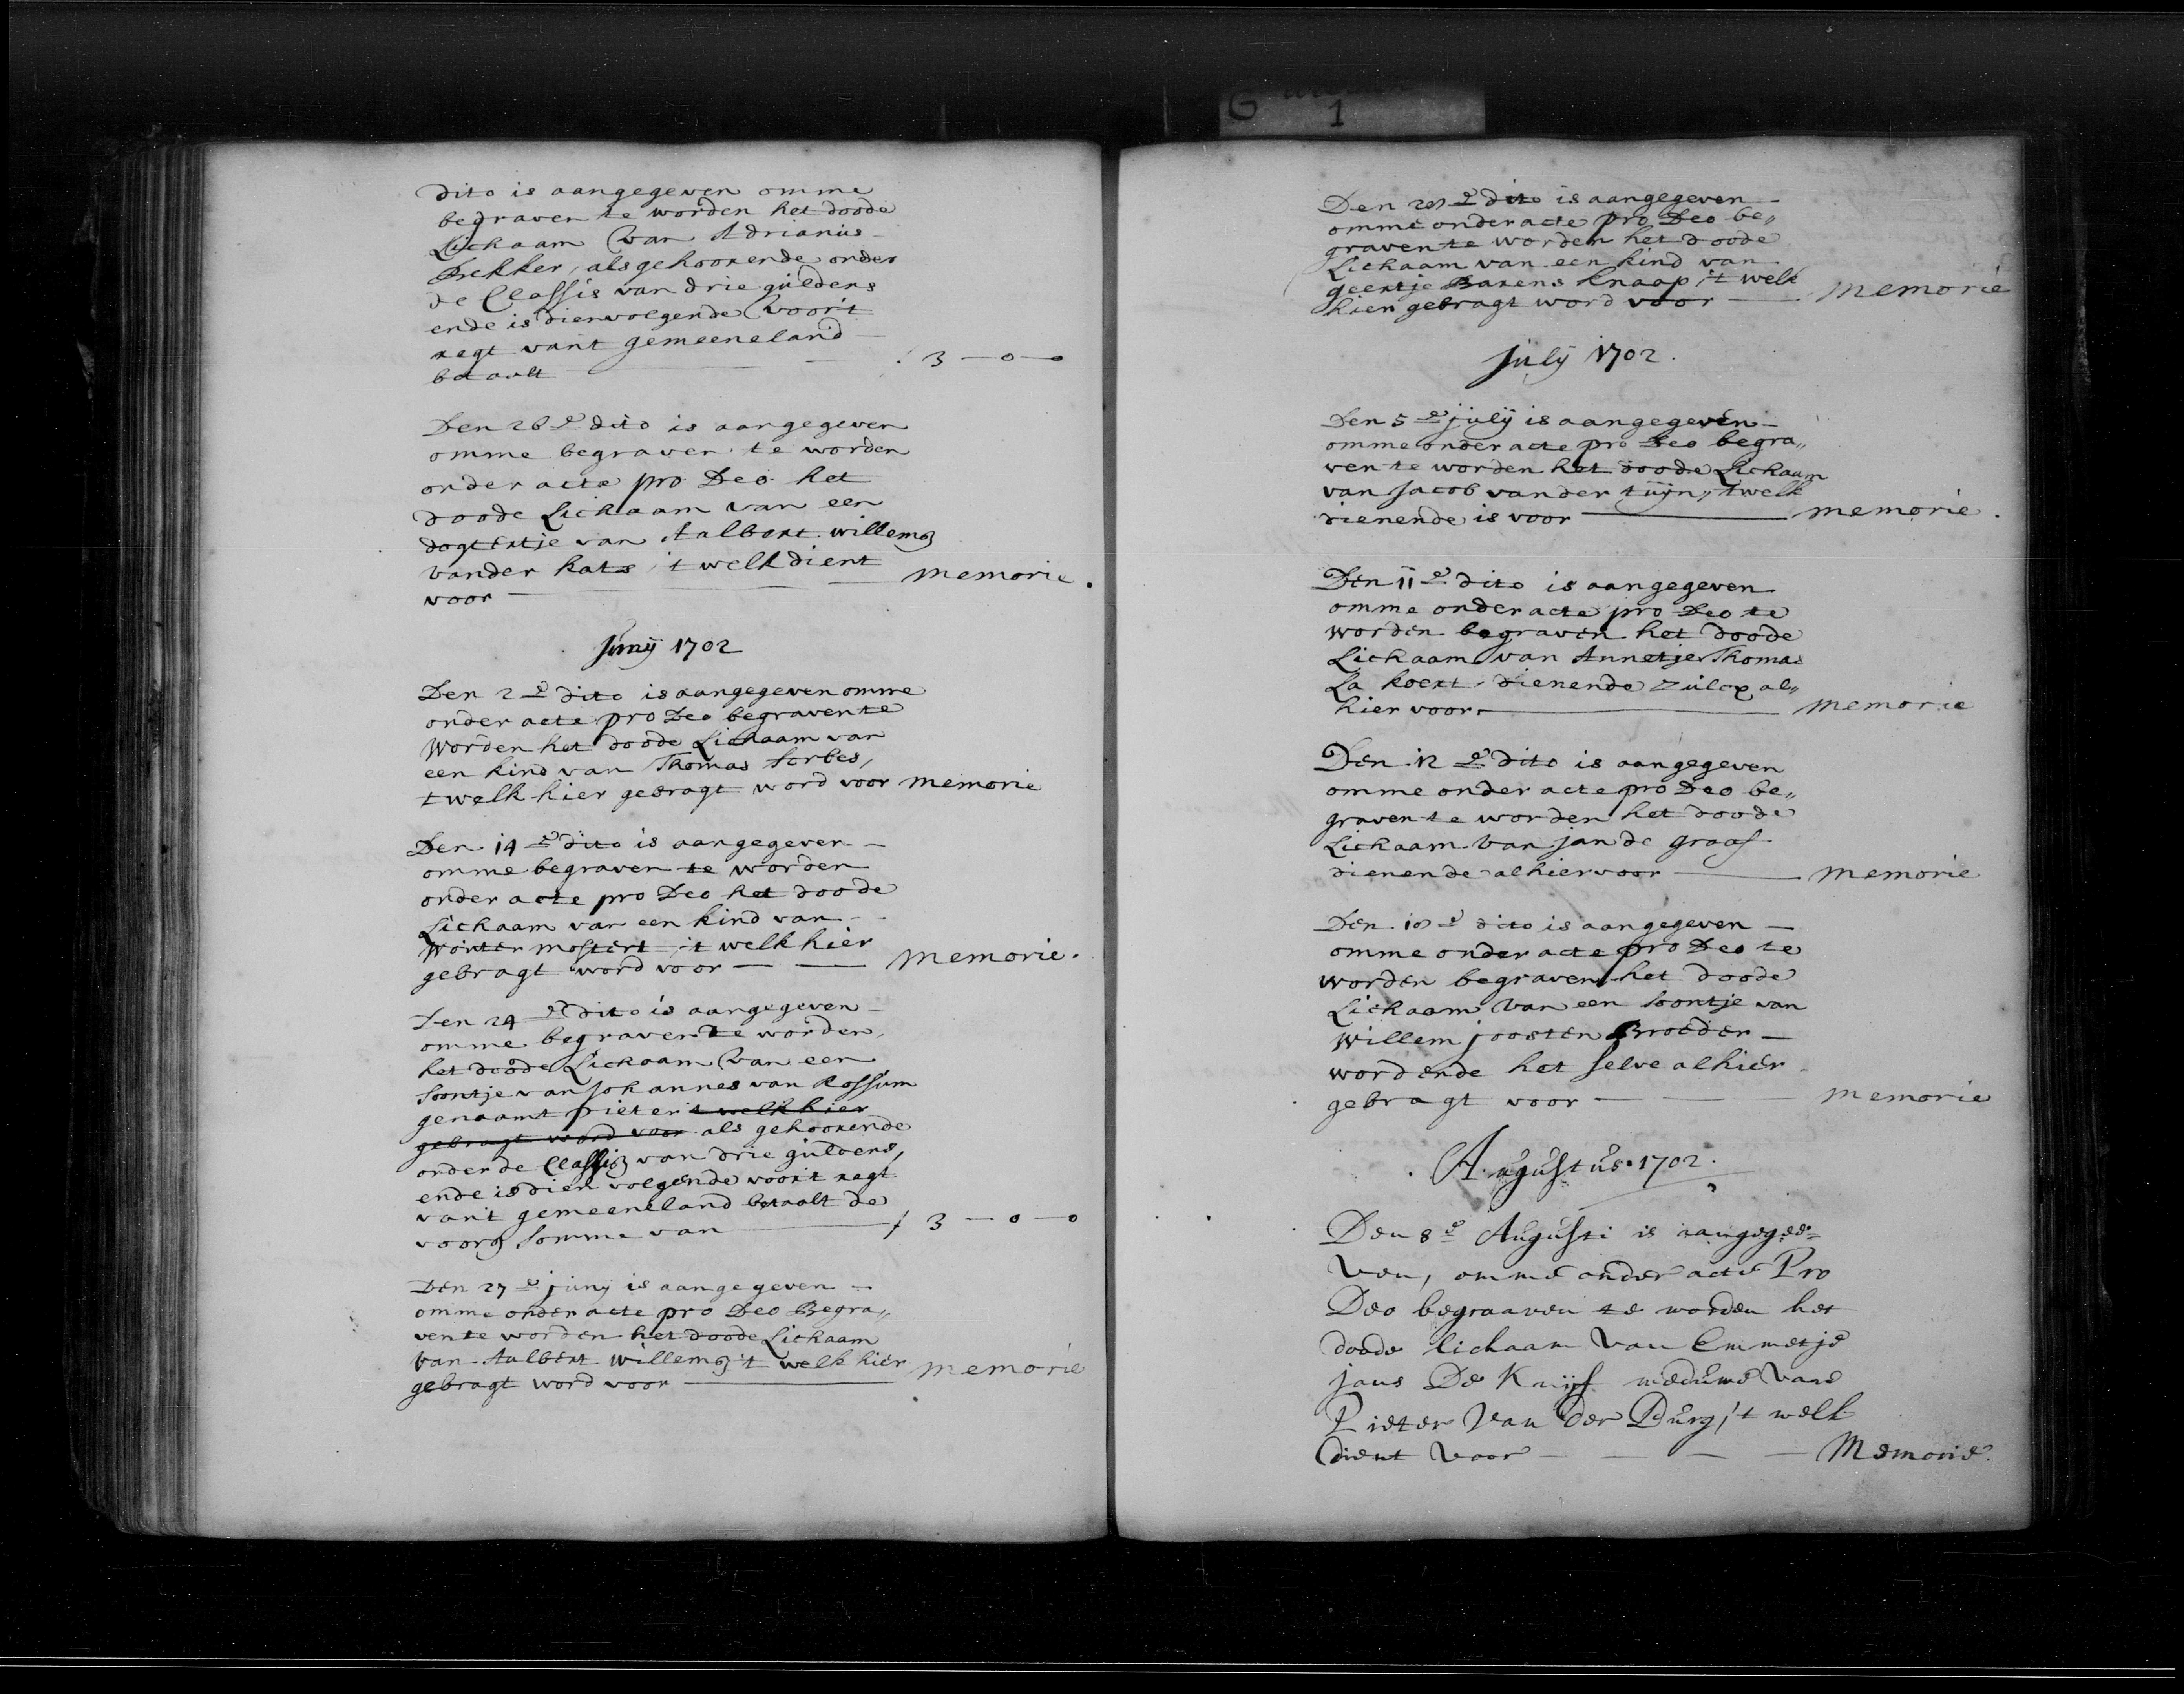 G
1
dito is aangegeven omme
begraven te worden het doode
Lichaam van Adrianus
Bekker, als gehoorende onder
de Classis van drie guldens
ende is dienvolgende voor't
regt van't gemeeneland
betaalt 3 — 0 — 0
Den 26e dito is aangegeven
omme begraven te worden
onder acte pro Deo het
doode Lichaam van een
dogtertje van Aalbert willemsz
vander kats, 't welk dient
voor memorie.
Junij 1702
Den 2e dito is aangegeven omme
onder acte pro Deo begraven te
Worden het doode Lichaam van
een kind van Thomas forbes,
t welk hier gebragt word voor memorie
Den 14e dito is aangegeven —
omme begraven te worden
onder acte pro Deo het doode
Lichaam van een kind van
Wouter mostert, 't welk hier
gebragt word voor — — memorie.
Den 24e dito is aangegeven —
omme begraven te worden
het doode Lichaam van een
soontje van Johannes van Rossum
genaamt pieter 't welk hier
gebragt word voor als gehoorende
onder de Classis van drie guldens,
ende is dien volgende voor't regt
van't gemeeneland betaalt de
voorsz somme van — f 3 — 0 — 0
Den 27e junij is aangegeven —
omme onder acte pro Deo Begra„
ven te worden het doode Lichaam
van Aalbert willemsz 't welk hier
gebragt word voor — memorie
Den dito is aangegeven —
omme onder acte pro Deo be„
graven te worden het doode
Lichaam van een kind van
geertje Barens Knaap, 't welk
hier gebragt word voor — memorie
July 1702.
Den 5e july is aangegeven —
omme onder acte pro Deo begra„
ven te worden het doode Lichaam
van Jacob vander tuijn, 't welk
dienende is voor — memorie.
Den 11e dito is aangegeven
omme onder acte pro Deo te
worden begraven het doode
Lichaam van Annetje Thomas
La koert, dienende zulex al„
hier voor — memorie
Den 12e dito is aangegeven
omme onder acte pro Deo be„
graven te worden het doode
Lichaam van jan de graaf
dienende alhier voor — memorie
Den dito is aangegeven —
omme onder acte pro Deo te
worden begraven het doode
Lichaam van een soontje van
Willem joosten Broeder —
wordende het selve alhier
gebragt voor — memorie
Augustus 1702.
Den 8e Augusti is aangegee=
ven, omme onder acte Pro
Deo begraaven te worden het
doode lichaam van Emmetje
jans De Knijf weduwe van
Pieter Van der Burg, 't welk
dient voor — — — Memorie.